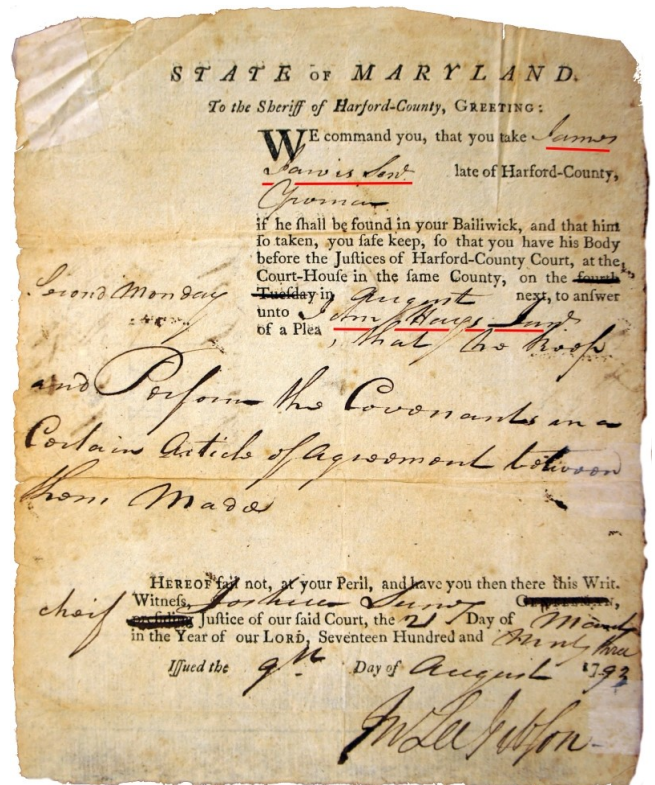 STATE OF MARYLAND.
To the Sheriff of Harford-County, GREETING:
WE command you, that you take James
Jarvis Senr late of Harford-County,
Yeoman
if he ſhall be found in your Bailiwick, and that him
ſo taken, you ſafe keep, ſo that you have his Body
before the Juſtices of Harford-County Court, at the
Court-Houſe in the ſame County, on the fourth
Second Monday Tueſday in August next, to anſwer
unto John Hays Junr
of a Plea, that he Keep
and Perform the Covenants in a
Certain Article of Agreement between
them Made
HEREOF fail not, at your Peril, and have you then there this Writ.
Witneſs, Joshua GENTLEMAN,
cheif Juſtice of our ſaid Court, the 2 Day of
in the Year of our LORD, Seventeen Hundred and Ninty three
Iſſued the 9th Day of August 1793
Jn Lee Gibſon